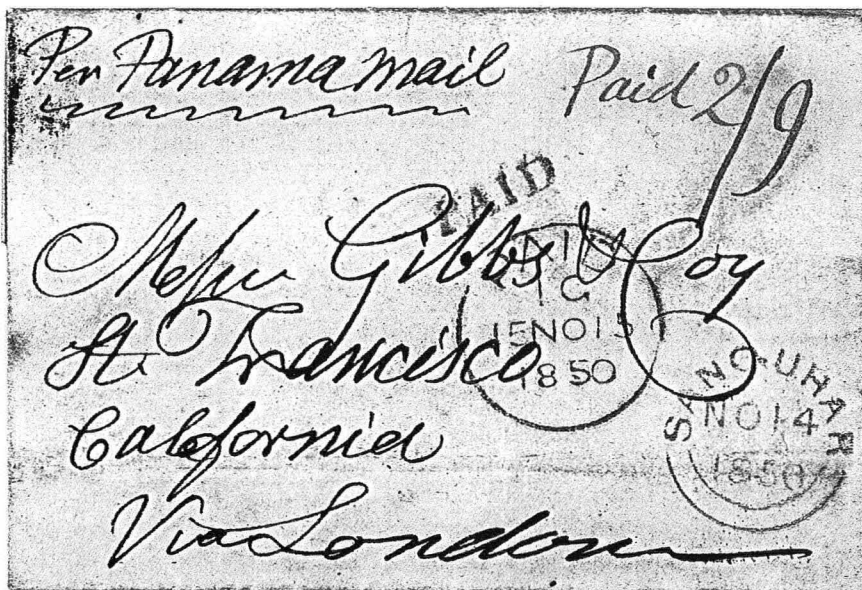 Per Panama mail
Paid 2/9
PAID
Messrs Gibbs & Coy
St. Francisco
California
Via London
1G
15NO15
1850
SANQUHAR
NO14
1850